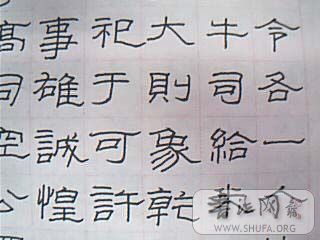 令各一
牛司給
大則象乾
祀于可許
事雄誠惶
司空公
WWW.SHUFA.ORG